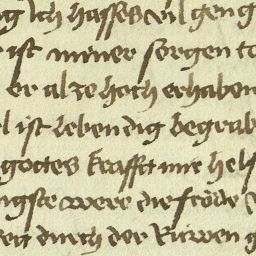 g Ich hasses vil gen g
ist miner sorgen to
er alze hoch erhaben
l ist lebendig begrab
gottes krafft mir helf
ngste were die froͤde
zeit durch der Ruwen g